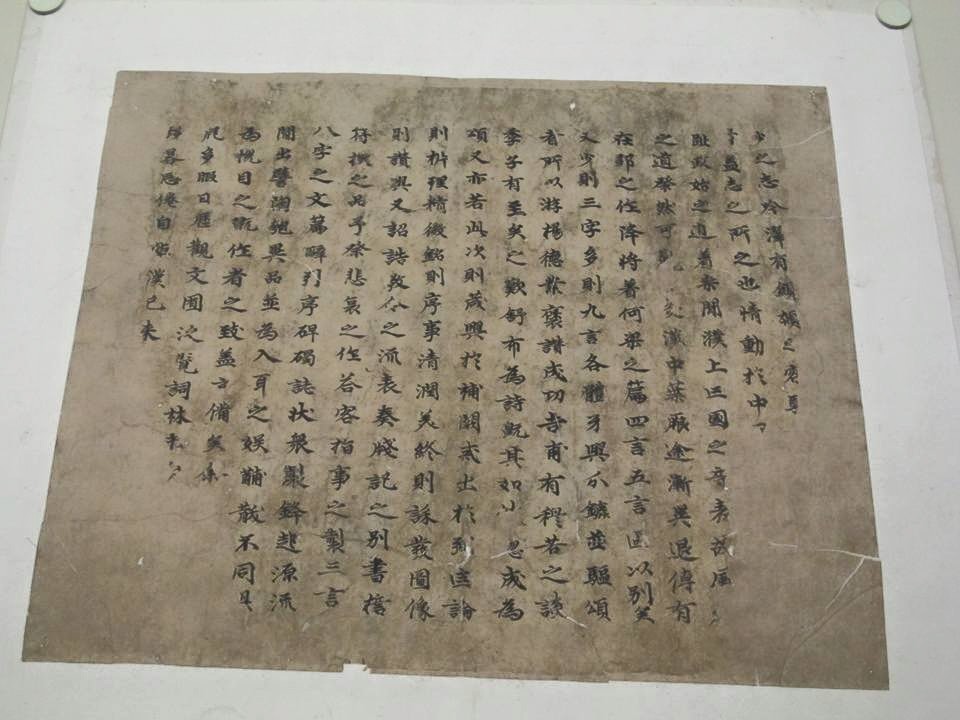 之志吟澤有顦顇之容
蓋志之所之也情動於中
趾政始之道著桒間濮上亡國之音表故風
之道粲然可觀炎漢中葉厥途漸異退傅有
在鄒之作降將著何梁之篇四言五言區以別矣
又少則三字多則九言各體互興分鑣並驅頌
者所以游楊德業褒讃成功吉甫有穆若之談
季子有至矣之歎舒布為詩既其如小忽成為
頌又亦若此次則箴興於補闕戒出於弼匡論
則析理精微銘則序事清潤美終則誄發圖像
則讃興又詔誥教令之流表奏牋記之別書檄
符檄之品弔祭悲哀之作荅客指事之製三言
八字之文篇辭引序碑碣誌狀衆製鋒起源流
間出譬陶匏異品並為入耳之娛黼黻不同俱
為悅目之翫作者之致蓋云備矣余
居多暇日歷觀文囿泛覽詞林未
移晷忘倦自姬漢已来